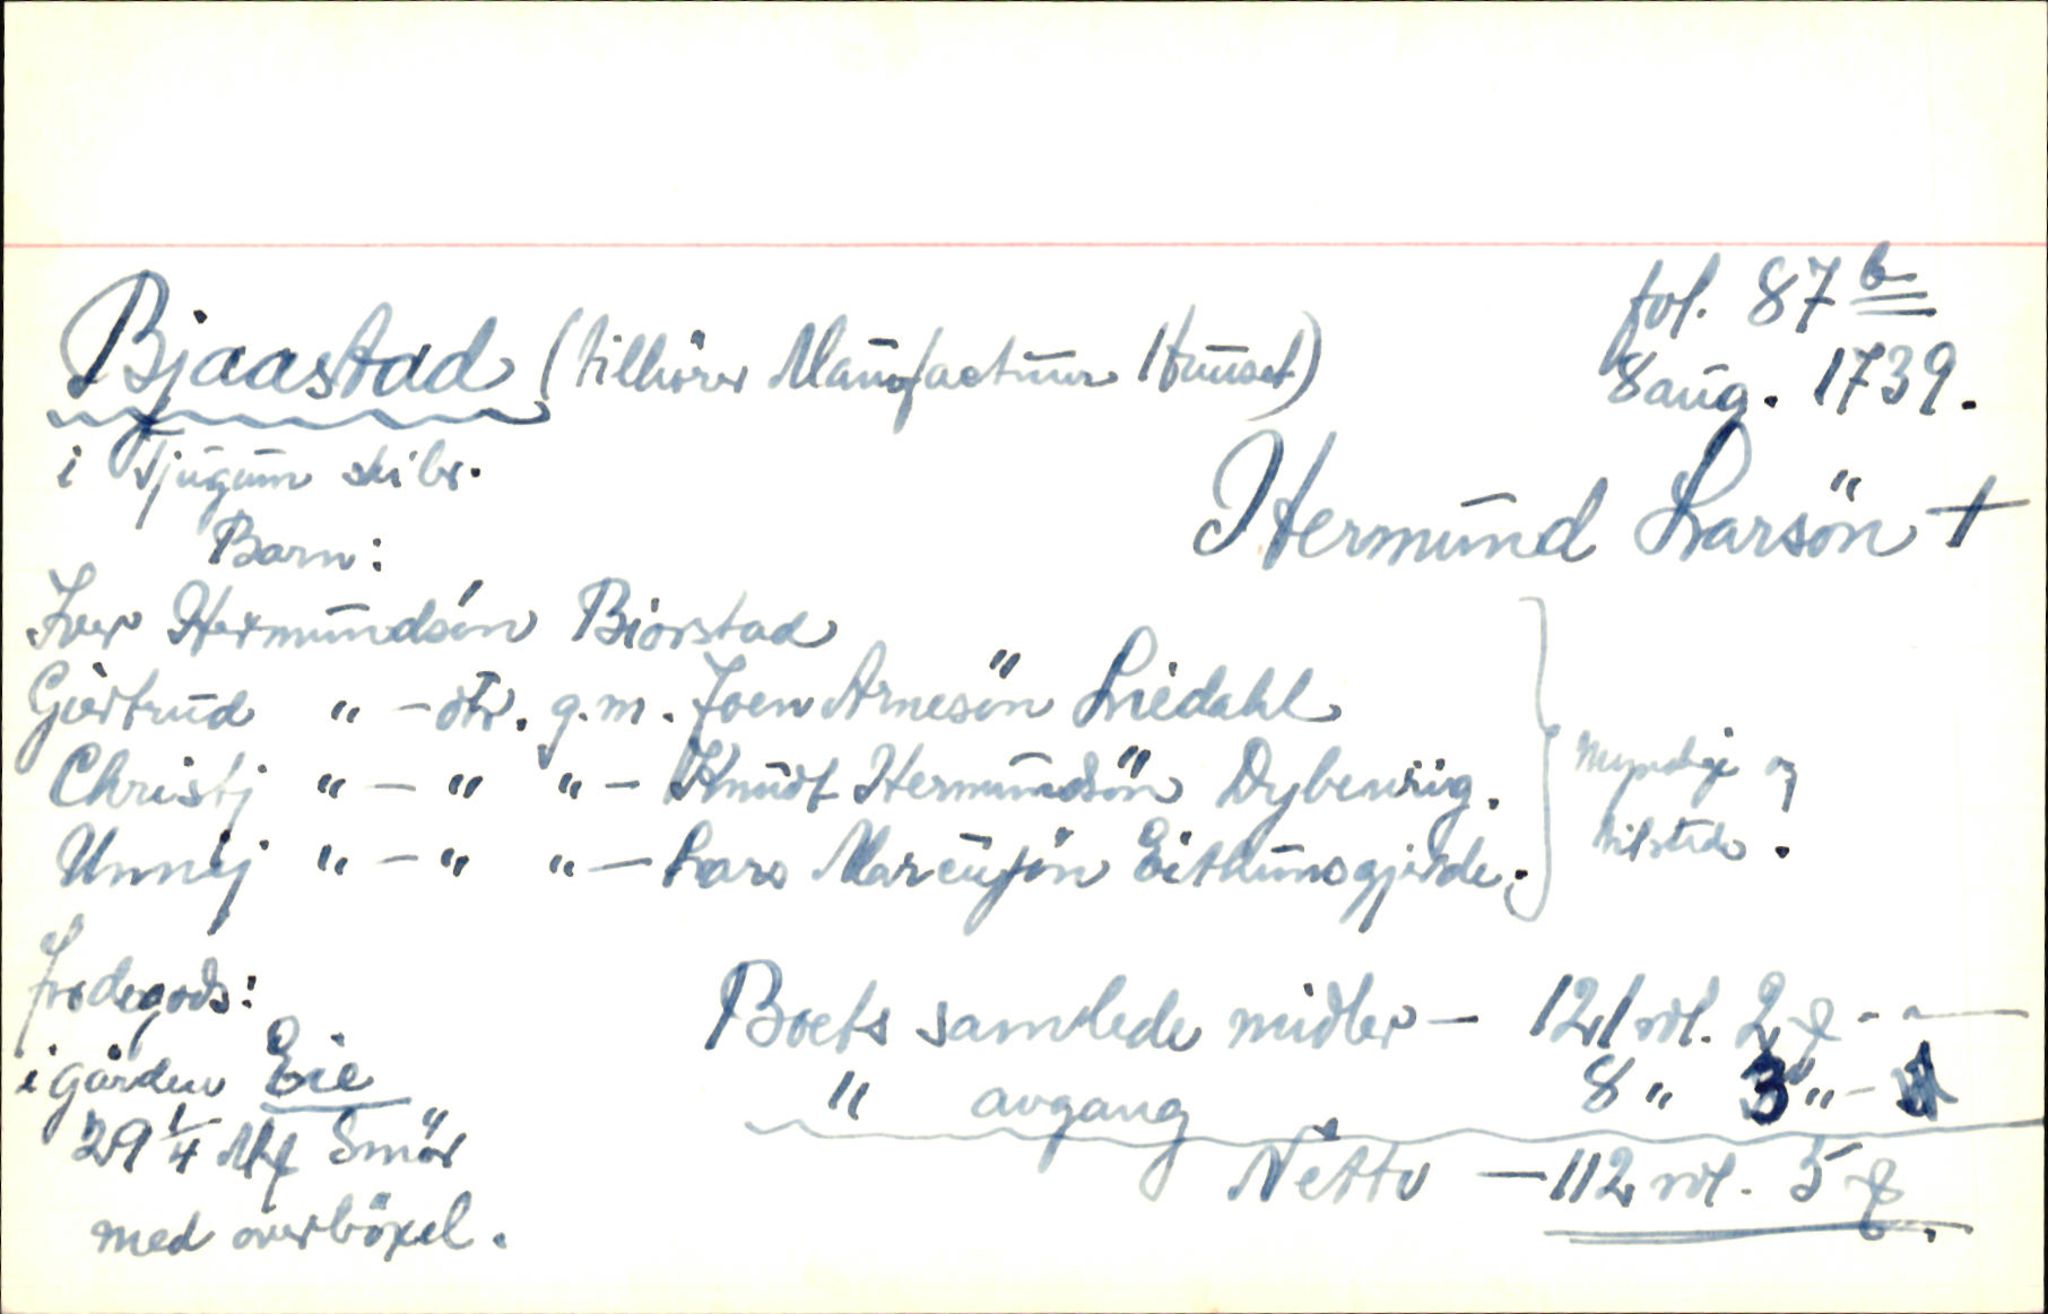 fol. 87 b
Bjaastad (tilhörer Manufactuur Huuset)
8 aug. 1739.
i Tjugum skibr.
Hermund Larsön †
Barn:
Iver Hermundsön Biørstad
Giertrud " - dtr. g.m. Joen Arnesön Liedahl
Christj " - " " - Knudt Hermundsön Dybevig.
Unnij " - " " - Lars Marcusön Eithunsgjerde.
Myndige og
tilstede.
Jordegods:
i gården Eie
29 1/4 Mk Smör
med overböxel.
Boets samlede midler - 121 rdl. 2 - - -
" avgang 8 " 3 " -
Netto - 112 rdl. 5